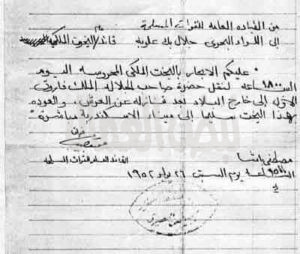 من القيادة العامة للقوات المسلحة
إلى اللواء البحرى جلال بك علوبه قائد اليخوت الملكية
عليكم الابحار باليخت الملكى المحروسة اليوم
الساعة ١٨٠٠ لنقل حضرة صاحب الجلالة الملك فاروق
الأول إلى خارج البلاد بعد تنازله عن العرش، والعودة
بهذا اليخت سليما إلى ميناء الاسكندرية مباشرة
القائد العام للقوات المسلحة
مصطفى باشا
يوم السبت ٢٦ يوليو ١٩٥٢